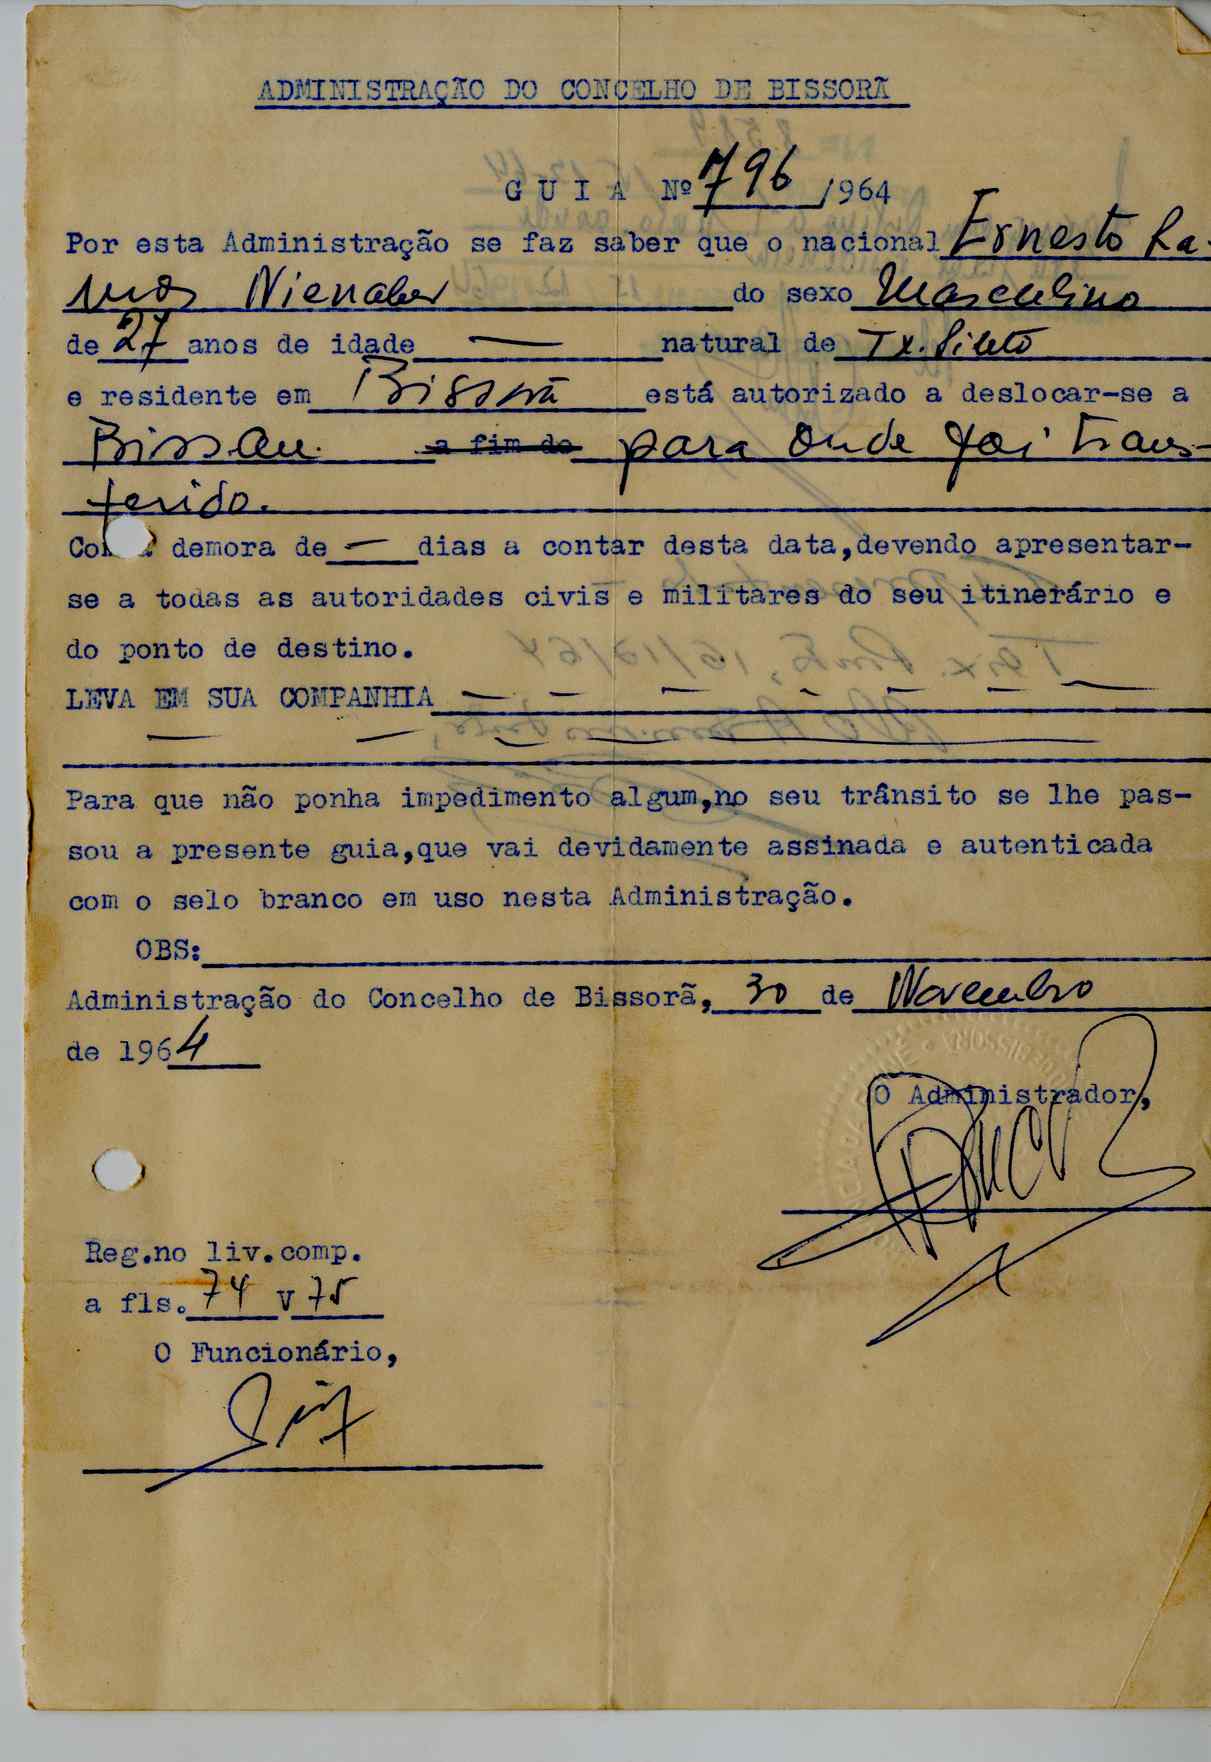 ADMINISTRAÇÃO DO CONCELHO DE BISSORÃ
GUIA Nº 796 /964
Por esta Administração se faz saber que o nacional Ernesto Ra-
mos Nienaber do sexo Masculino
de 27 anos de idade — natural de Tx.
e residente em Bissorã está autorizado a deslocar-se a
Bissau. a fim de para onde foi trans-
ferido.
Com a demora de — dias a contar desta data,devendo apresentar-
se a todas as autoridades civis e militares do seu itinerário e
do ponto de destino.
LEVA EM SUA COMPANHIA — — — — — — —
— — — —
Para que não ponha impedimento algum,no seu trânsito se lhe pas-
sou a presente guia,que vai devidamente assinada e autenticada
com o selo branco em uso nesta Administração.
OBS:
Administração do Concelho de Bissorã, 30 de Novembro
de 1964
O Administrador,
Reg.no liv.comp.
a fls. 74 v 75
O Funcionário,